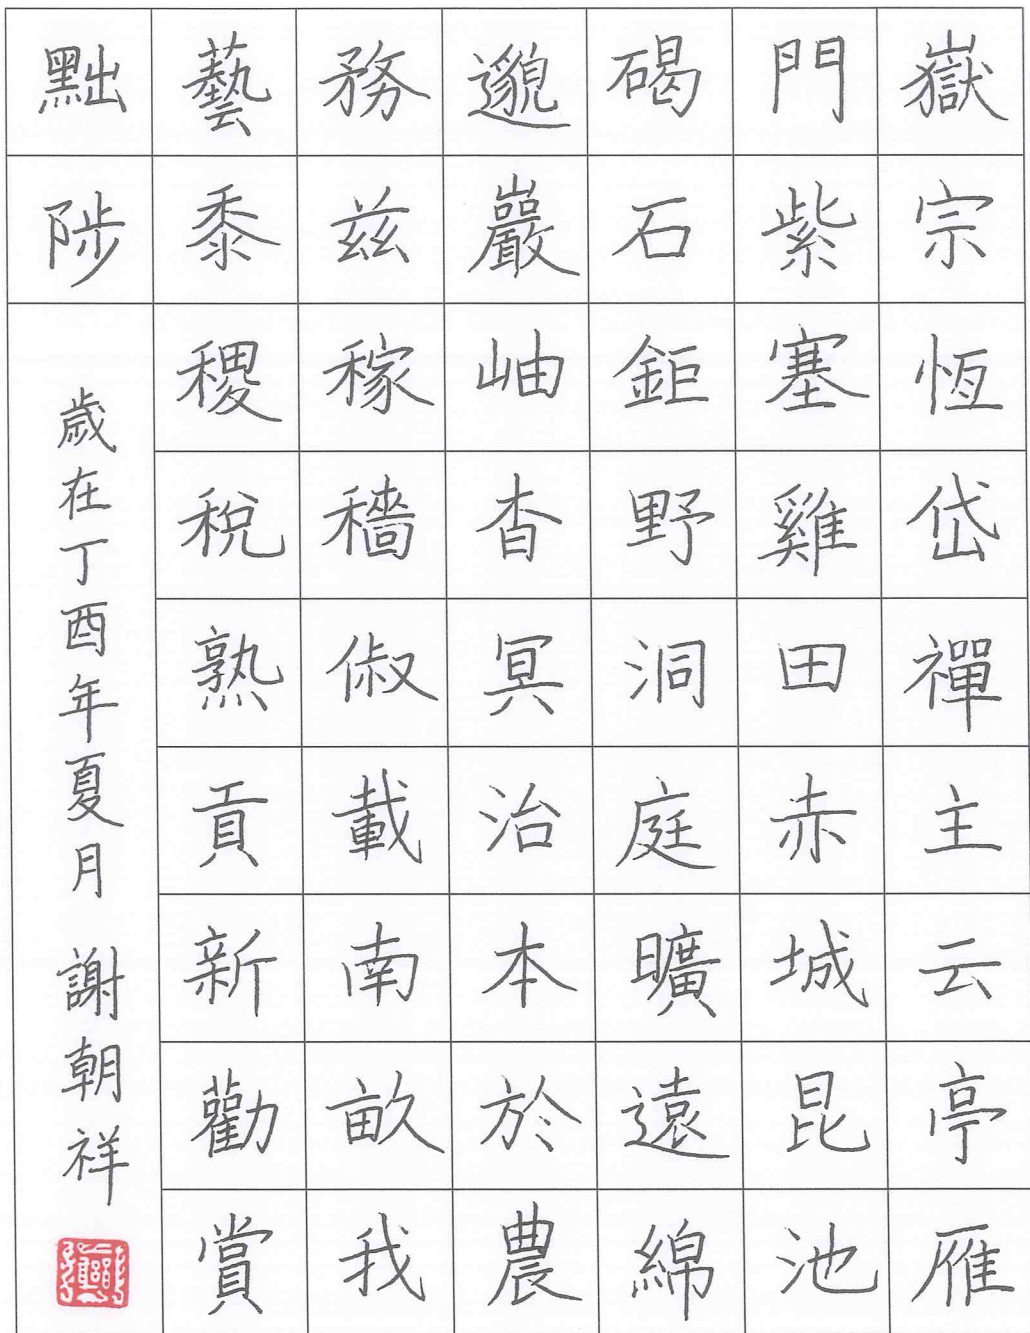 嶽宗恆岱禪主云亭雁
門紫塞雞田赤城昆池
碣石鉅野洞庭曠遠綿
邈巖岫杳冥治本於農
務茲稼穡俶載南畝我
藝黍稷稅熟貢新勸賞
黜陟
歲在丁酉年夏月 謝朝祥